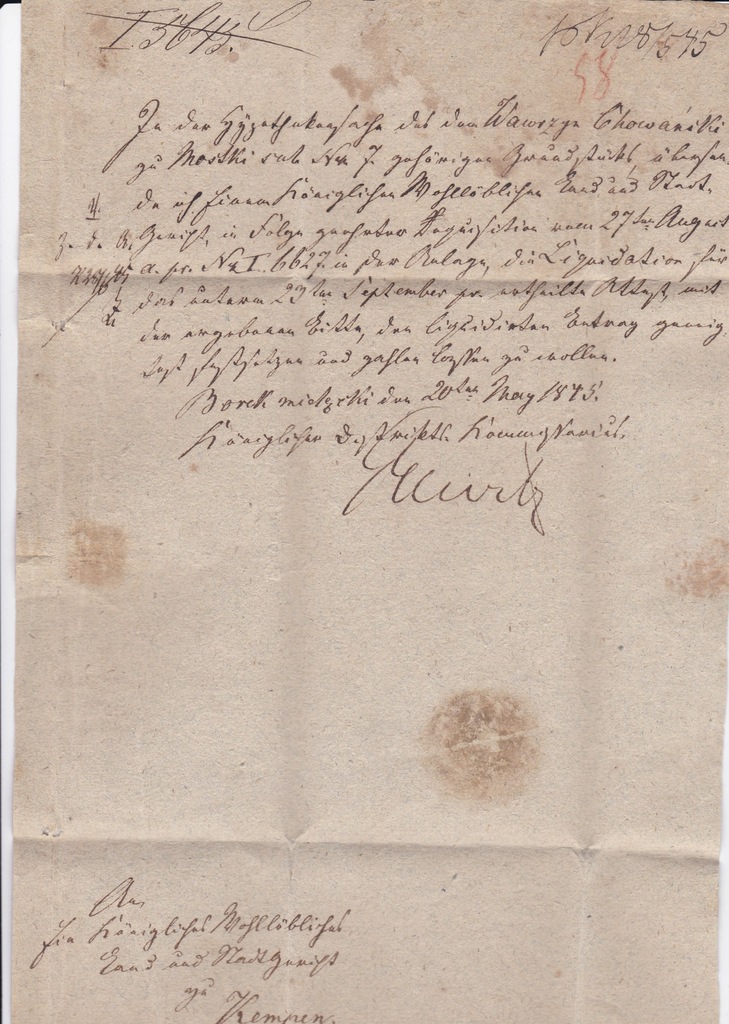 I. 5645.
58
In der Hypothekensache des dem Wawrzyn Chowański
zu Mostki sub No 7. gehörigen Grundstücks, übersen-
de ich Einem Königlichen Wohllöblichen Land und Stadt-
Gericht, in Folge geehrter Requisition vom 27ten August
a. pr. No I. 6627. in der Anlage, die Liquidation für
das unterm 23ten September pr. ertheilte Attest, mit
der ergebenen Bitte, den liquidirten Betrag geneig-
test festsetzen und zahlen lassen zu wollen.
Borek mielęcki den 20ten May 1845.
Königlicher Distrikts-Kommissarius.
An
Ein Königliches Wohllöbliches
Land und Stadtgericht
zu
Kempen.